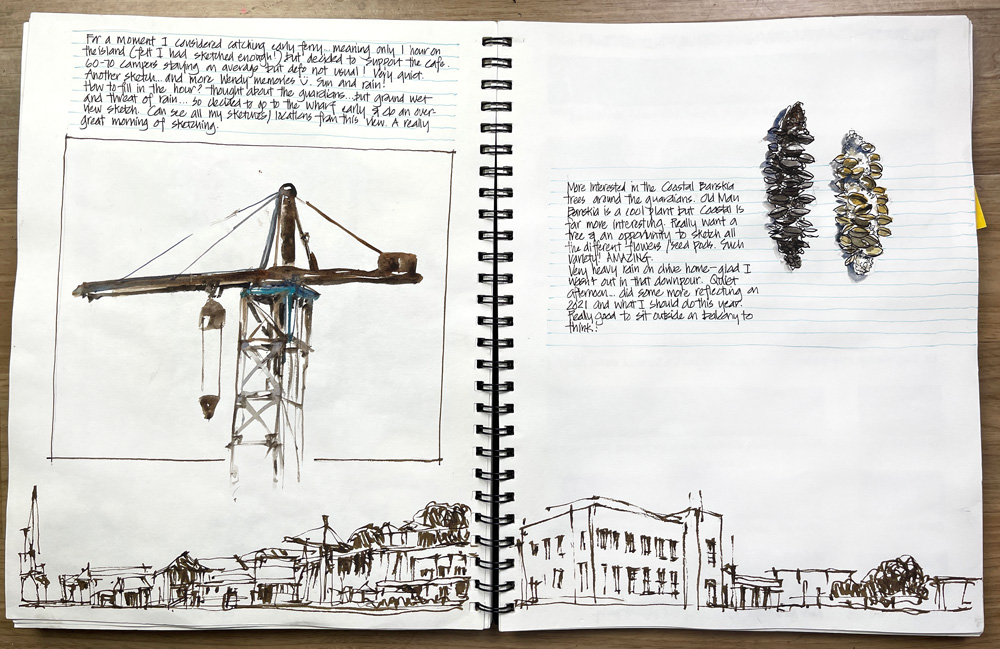 For a moment I considered catching early ferry... meaning only 1 hour on
the island (felt I had sketched enough!) but decided to support the cafe.
60-70 campers staying on average but defo not usual! Very quiet.
Another sketch... and more Wendy memories Sun and rain!
How to fill in the hour? thought about the guardians... but ground wet
and threat of rain... so decided to go to the wharf early & do an over-
view sketch. Can see all my sketches/locations from this view. A really
great morning of sketching.
More interested in the Coastal Banskia
trees around the guardians. Old Man
Banskia is a cool plant but Coastal is
far more interesting. Really want a
tree & an opportunity to sketch all
the different flowers/seed pods. Such
variety! AMAZING.
Very heavy rain on drive home - glad I
wasn't out in that downpour. Quiet
afternoon... did some more reflecting on
2021 and what I should do this year.
Really good to sit outside on balcony to
think!